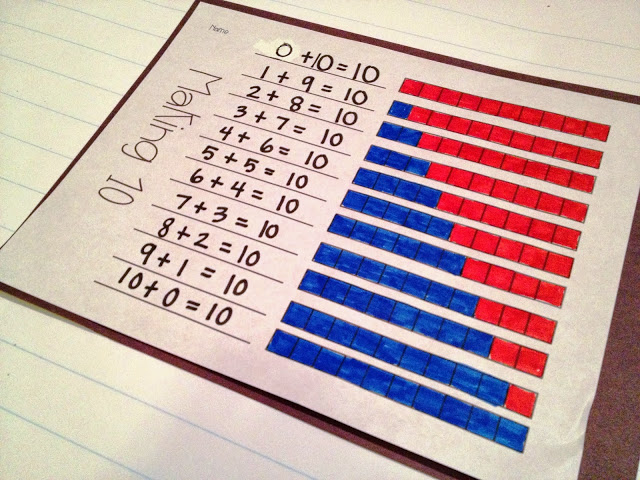 Name
Making 10
0 + 10 = 10
1 + 9 = 10
2 + 8 = 10
3 + 7 = 10
4 + 6 = 10
5 + 5 = 10
6 + 4 = 10
7 + 3 = 10
8 + 2 = 10
9 + 1 = 10
10 + 0 = 10